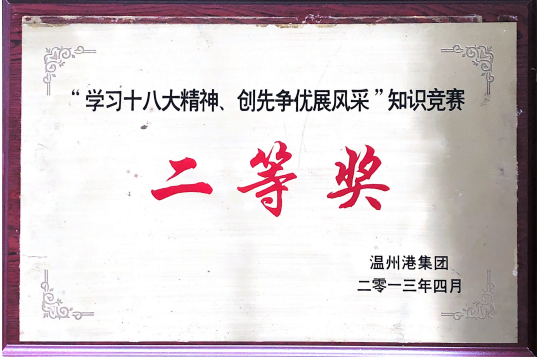 “学习十八大精神、创先争优展风采”知识竞赛
二等奖
温州港集团
二零一三年四月